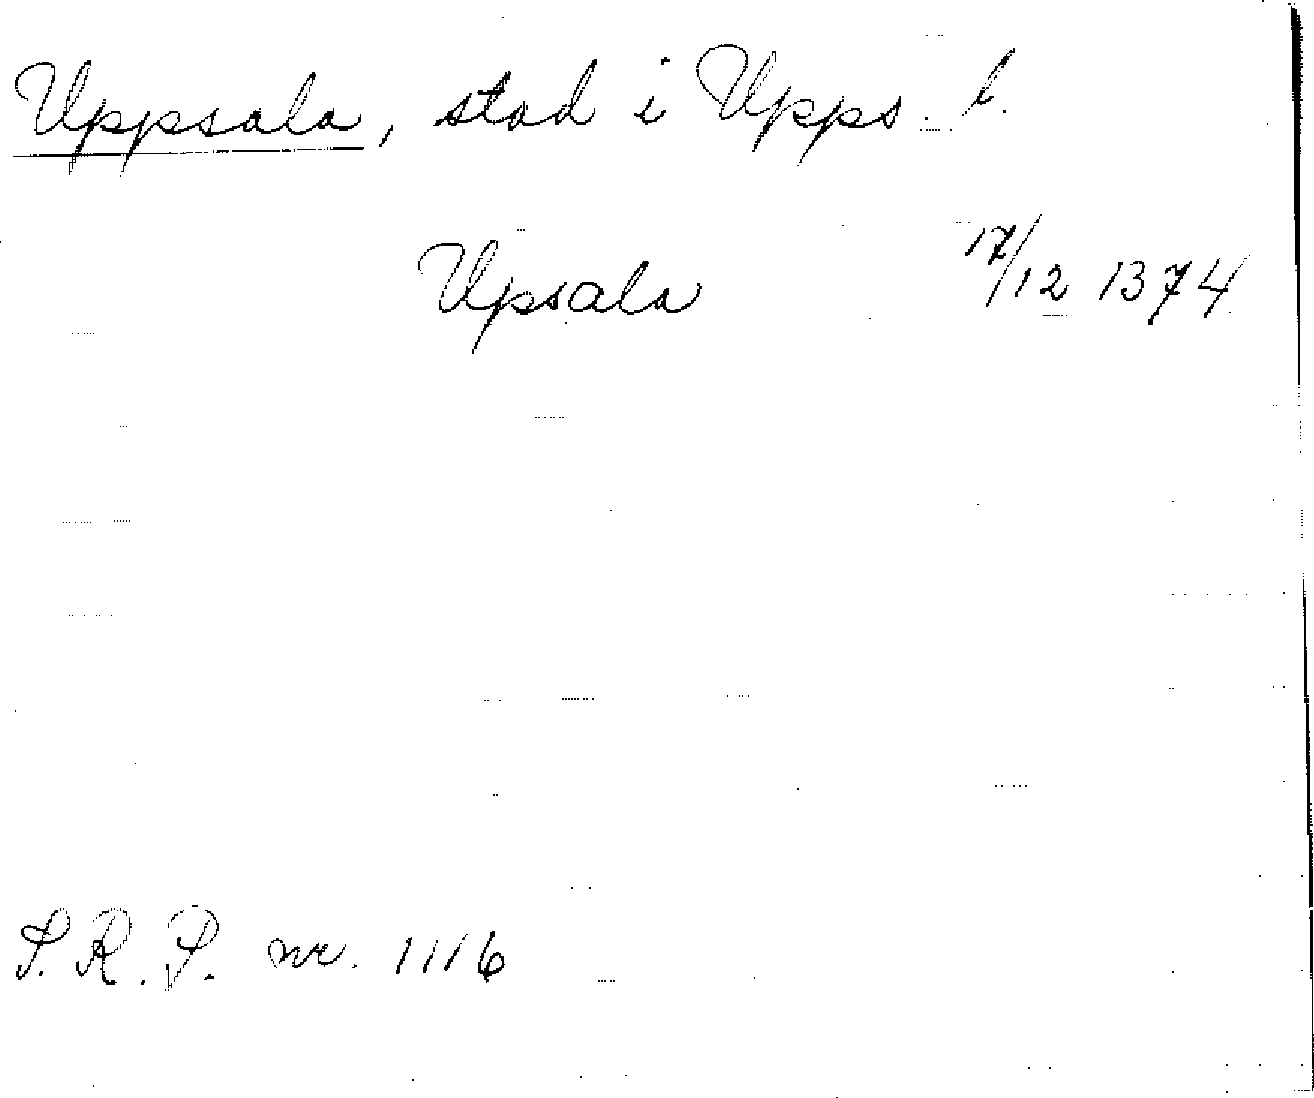 Uppsala, stad i Upps. l.
Upsala 17/12 1374
S.R.P. nr. 1116